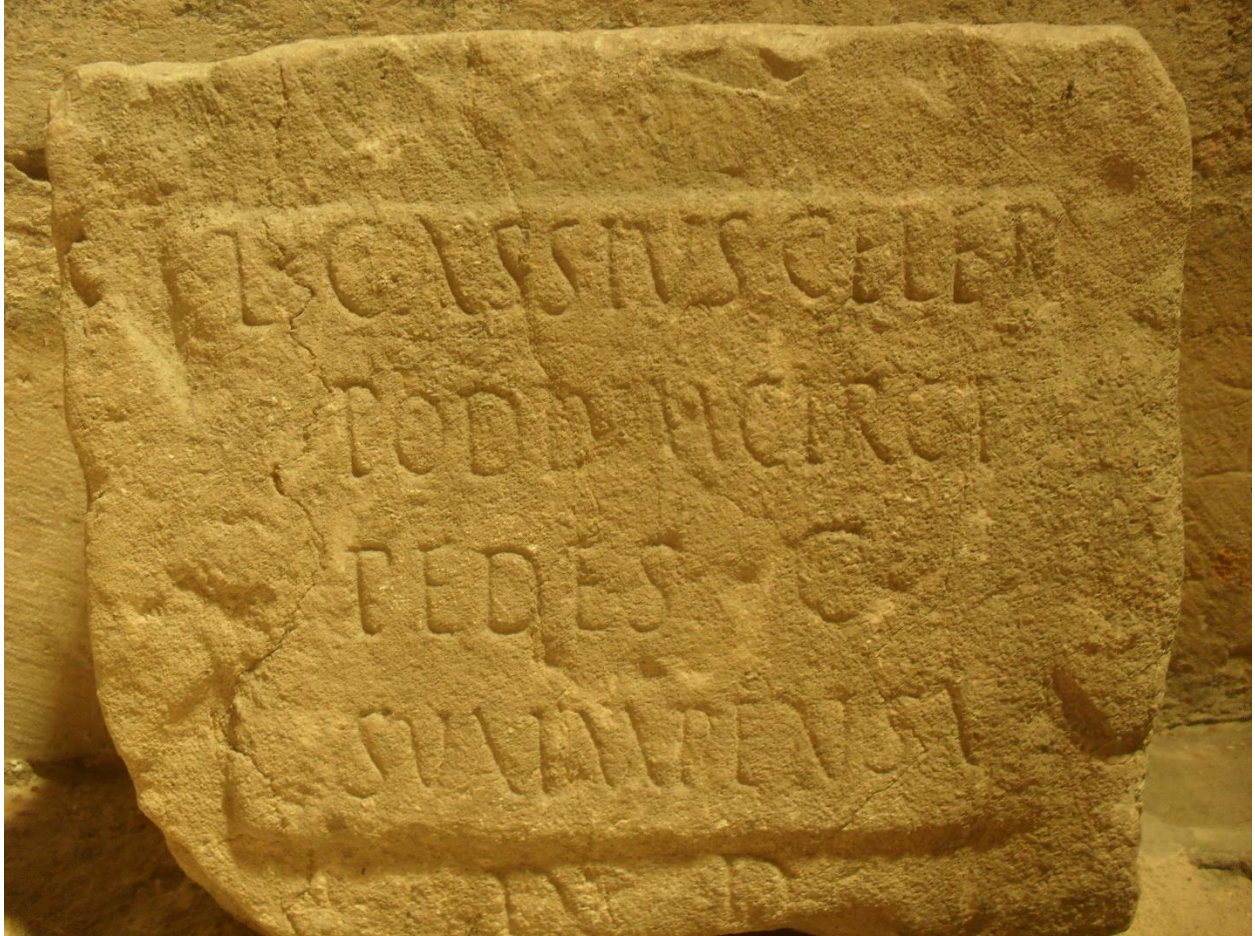 L CASSIVS CELER
PODIVM CIRCI
PEDES C
SVA IMPENSA